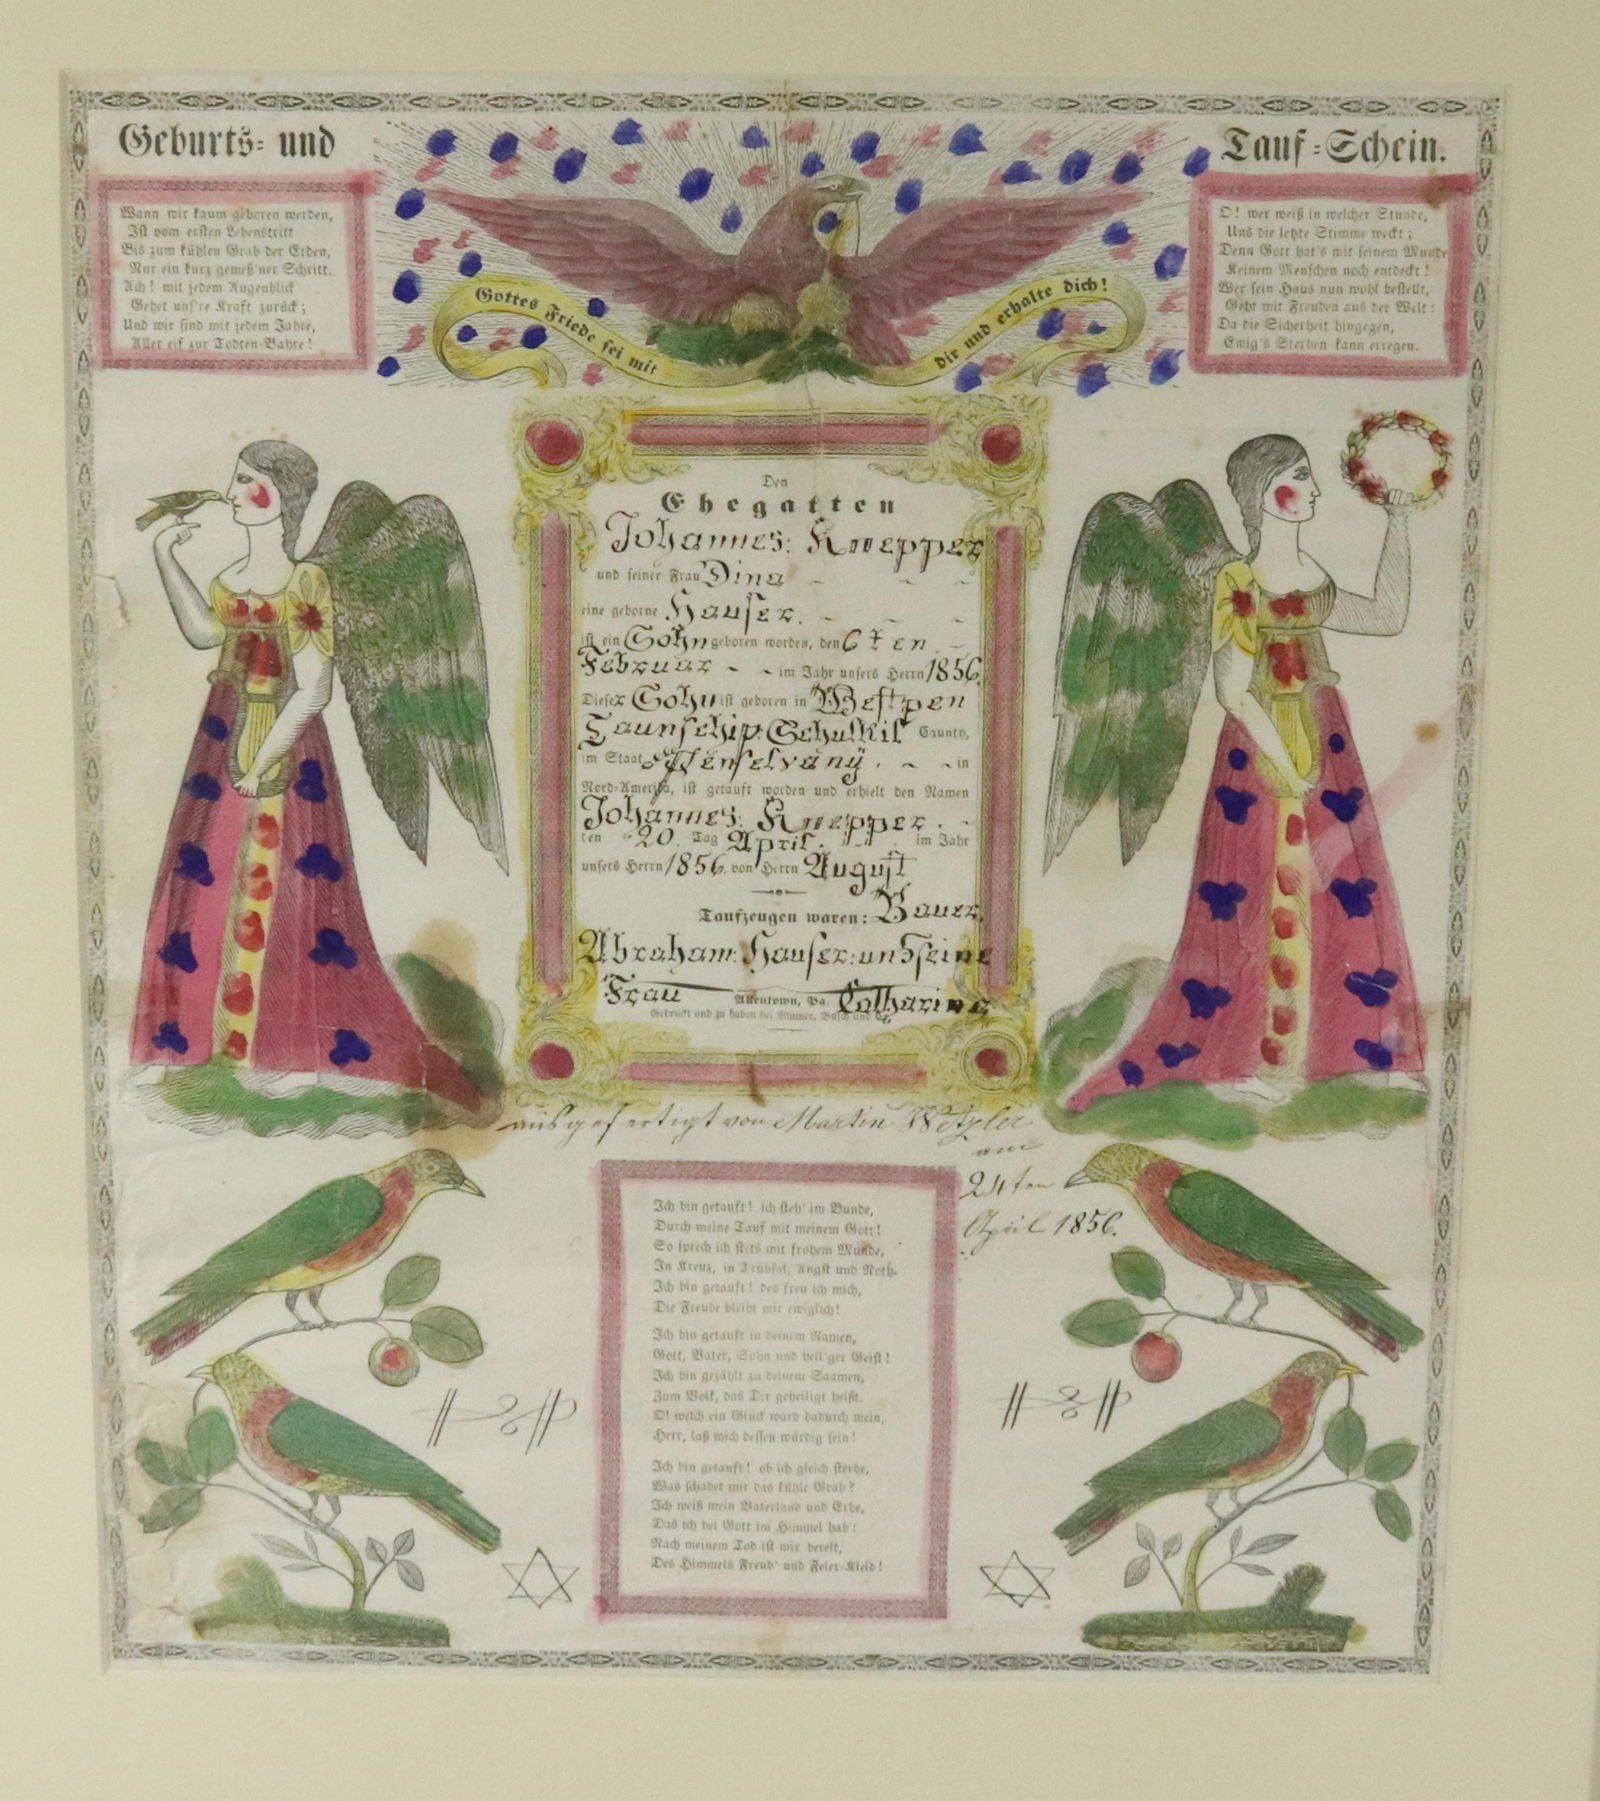 Geburts- und
Tauf-Schein.
Wann wir kaum geboren werden,
Ist vom ersten Lebenstritt
Bis zum kühlen Grab der Erden,
Nur ein kurz gemeß'ner Schritt.
Ach! mit jedem Augenblick
Gehet uns're Kraft zurück;
Und wir sind mit jedem Jahre,
Aller eif zur Todten-Bahre!
Gottes Friede sei mit dir und erhalte dich!
O! wer weiß in welcher Stunde,
Uns die letzte Stimme weckt;
Denn Gott hat's mit seinem Munde
Keinem Menschen noch entdeckt!
Wer sein Haus nun wohl bestellt,
Geht mit Freuden aus der Welt:
Da die Sicherheit hingegen,
Ewig's Sterben kann erregen.
Den
Ehegatten
Johannes: Knepper
und seiner Frau Dina
eine geborne Hauser.
ist ein Sohn geboren worden, den 6ten
Februar im Jahr unsers Herrn 1856.
Dieser Sohn ist geboren in Westpen
Taunschip: Schulkil County,
im Staat Penselvany. in
Nord-Amerika, ist getauft worden und erhielt den Namen
Johannes: Knepper.
den 20. Tag April. im Jahr
unsers Herrn 1856. von Herrn August
Taufzeugen waren: Bauer.
Abraham: Hauser: und seine
Frau Catharina
Allentown, Pa.
Gedruckt und zu haben bei Blumer, Busch und Co.
ausgefertigt von Martin Wetzler
am
24ten
April 1856.
Ich bin getauft! ich steh' im Bunde,
Durch meine Tauf mit meinem Gott!
So sprech ich stets mit frohem Munde,
In Kreuz, in Trübsal, Angst und Noth.
Ich bin getauft! des freu ich mich,
Die Freude bleibt mir ewiglich!
Ich bin getauft in deinem Namen,
Gott, Vater, Sohn und heil'ger Geist!
Ich bin gezählt zu deinem Saamen,
Zum Volk, das Dir geheiligt heißt.
O! welch ein Glück ward dadurch mein,
Herr, laß mich dessen würdig sein!
Ich bin getauft! ob ich gleich sterbe,
Was schadet mir das kühle Grab?
Ich weiß mein Vaterland und Erbe,
Das ich bei Gott im Himmel hab:
Nach meinem Tod ist mir bereit,
Des Himmels Freud' und Feier-Kleid!